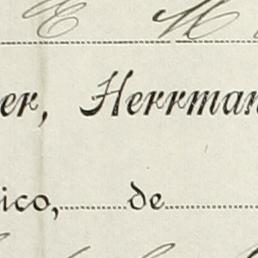 E M
er, Herrman
ico, de